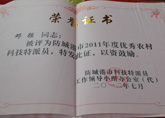 荣誉证书
邓雅 同志:
被评为防城港市2011年度优秀农村
科技特派员,特发此证,以资鼓励。
防城港市科技特派员
工作领导小组办公室(代)
二〇一二年七月